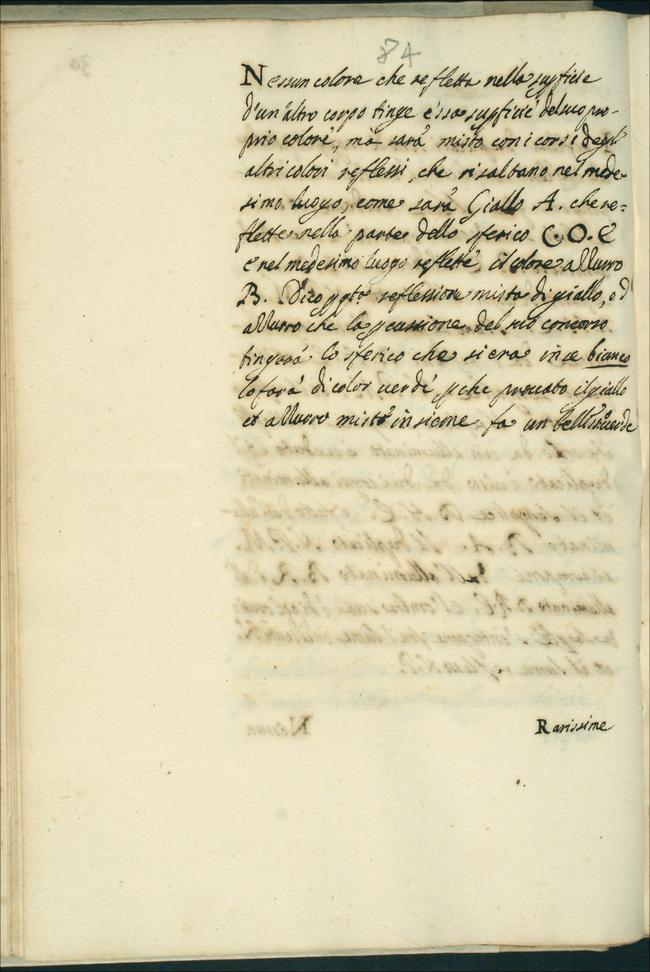 84
Nessun colore che refletta nella supficie
d'un altro corpo tinge essa supficie del suo pro-
prio colore, ma sarà misto con i corsi degl'
altri colori reflessi, che risaltano nel mede-
simo luogo, come sarà Giallo A. che re=
flette nella parte dello sferico C. O. E
e nel medesimo luogo reflette, il colore azzurro
B. Dico reflessione mista di giallo, ed
azzurro che la pcussione del suo concorso
tingerà lo sferico che s'era in se bianco
lo farà di color verde, pche il giallo
et azzurro misto insieme fa un verde
Rarissime